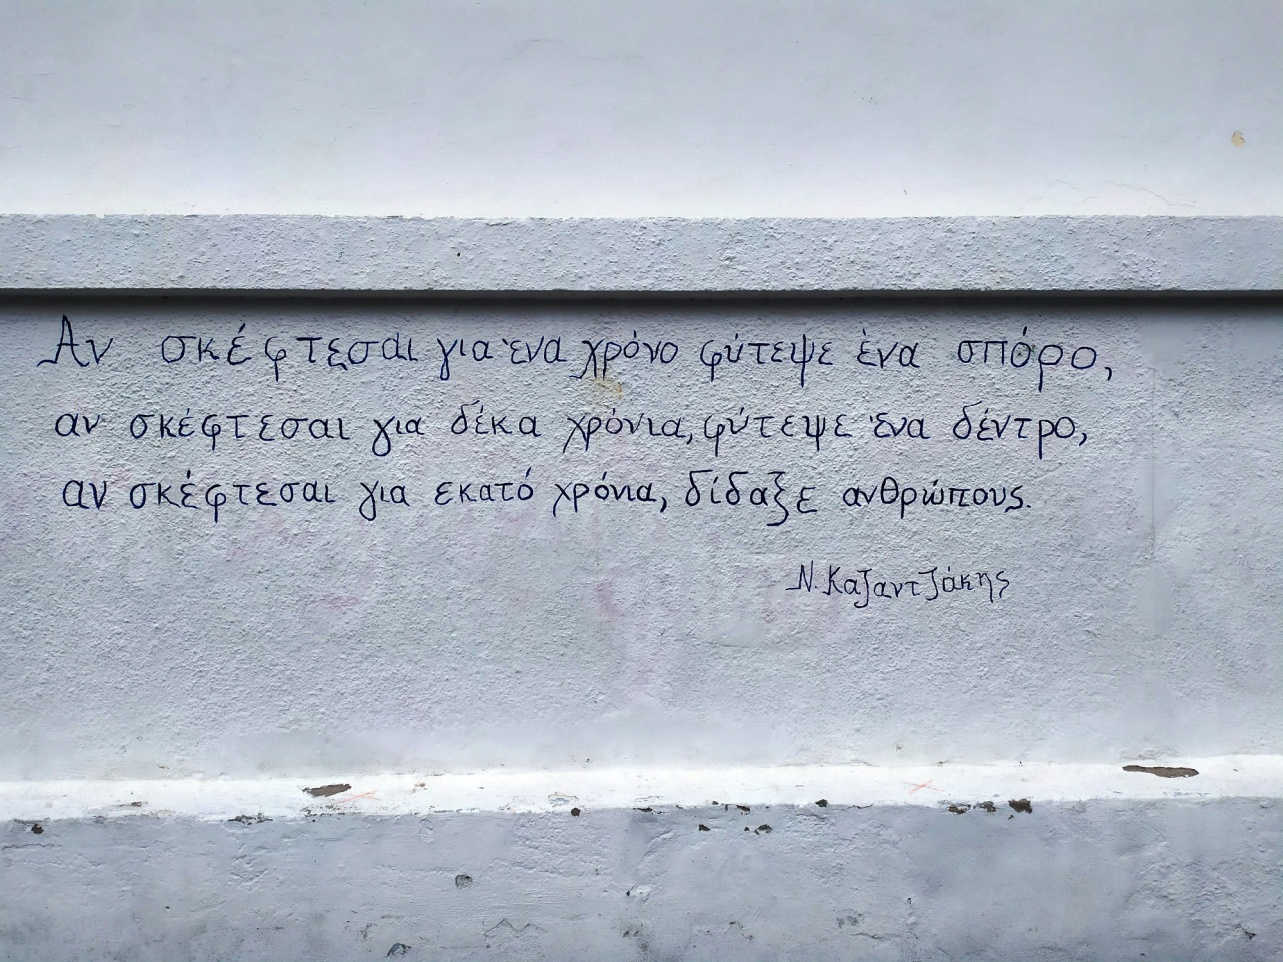 Αν σκέφτεσαι για ένα χρόνο φύτεψε ένα σπόρο,
αν σκέφτεσαι για δέκα χρόνια, φύτεψε ένα δέντρο,
αν σκέφτεσαι για εκατό χρόνια, δίδαξε ανθρώπους.
Ν. Καζαντζάκης